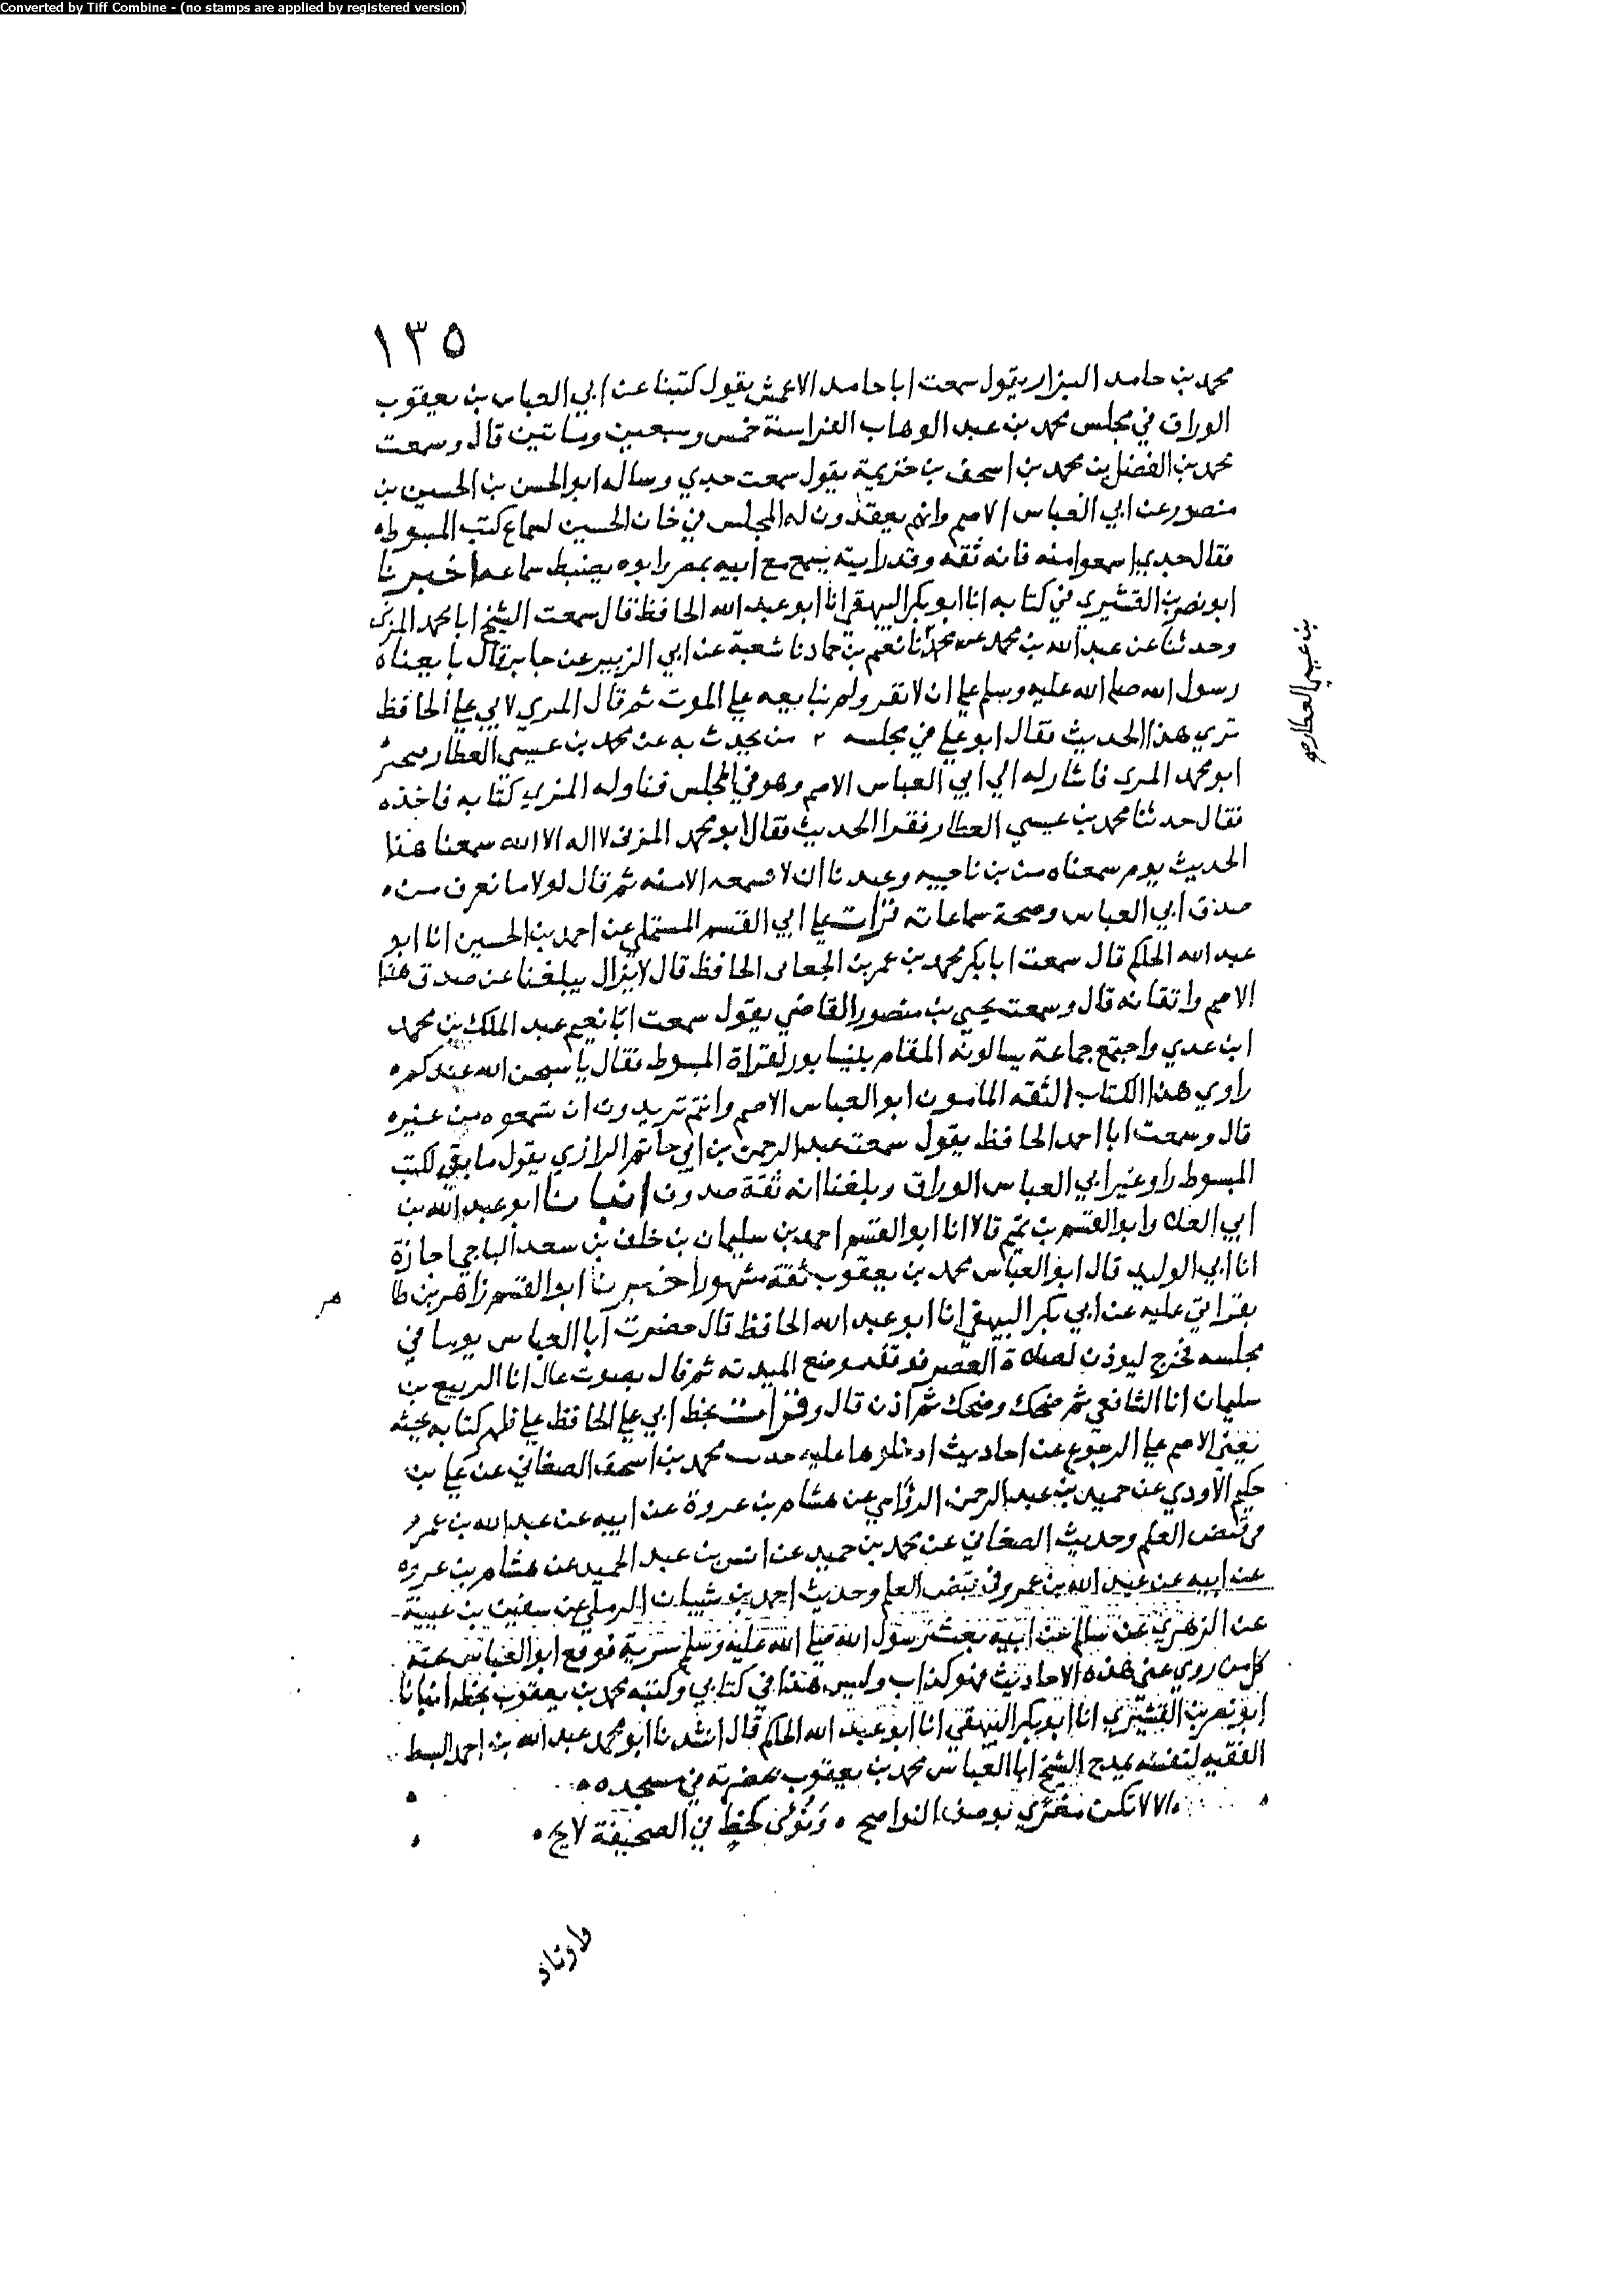 Converted by Tiff Combine - (no stamps are applied by registered version)
١٣٥
محمد بن حامد البزار يقول سمعت ابا حامد الاعمش يقول كتبنا عن ابي العباس بن يعقوب
الوراق في مجلس محمد بن عبد الوهاب الفرا سنة خمس وسبعين وماتين قال وسمعت
محمد بن الفضل بن محمد بن اسحق بن خزيمة يقول سمعت جدي وساله ابو الحسن بن الحسين بن
منصور عن ابي العباس الاصم وانهم يعقدون له المجلس في خان الحسين لسماع كتب المبسوط
فقال جدي اسمعوا منه فانه ثقه وقد رايته يسمع مع ابيه بمصر وابوه يضبط سماعه اخبرنا
ابو نصر بن القشيري في كتابه انا ابو بكر البيهقي انا ابو عبد الله الحافظ قال سمعت الشيخ ابا محمد المزني
وحدثنا عن عبد الله بن محمد عن محمد نا نعيم بن حماد نا شعبة عن ابي الزبير عن جابر قال بايعناه
بن عيسى العطار صح
رسول الله صلى الله عليه وسلم علي ان لا نفر ولم نبايعه علي الموت ثم قال المزني لابي علي الحافظ
تري هذا الحديث فقال ابو علي في مجلسه من يحدث به عن محمد بن عيسى العطار
ابو محمد المزني فاشار له الي ابي العباس الاصم وهو في المجلس فناوله المزني كتابه فاخذه
فقال حدثنا محمد بن عيسي العطار فقرا الحديث فقال ابو محمد المزني لا اله الا الله سمعنا هذا
الحديث يوم سمعناه من بن ناجيه وعندنا ان لا نسمعه الا منه ثم قال لولا ما نعرف من
صدق ابي العباس وصحة سماعاته قرات علي ابي القسم المستملي عن احمد بن الحسين انا ابو
عبد الله الحاكم قال سمعت ابا بكر محمد بن عمر بن الجعابي الحافظ قال لا يزال يبلغنا عن صدق هذا
الاصم واتقانه قال وسمعت يحيى بن منصور القاضي يقول سمعت ابا نعيم عبد الملك بن محمد
ابن عدي واجتمع جماعة يسالونه المقام بنيسابور لقراة المبسوط فقال يا سبحن الله عندكم
راوي هذا الكتاب الثقه المامون ابو العباس الاصم وانتم تريدون ان تسمعوه من غيره
قال وسمعت ابا احمد الحافظ يقول سمعت عبد الرحمن بن ابي حاتم الرازي يقول ما بقي لكتب
المبسوط راو غير ابي العباس الوراق وبلغنا انه ثقة صدوق انبانا ابو عبد الله بن
ابي العلاء وابو القسم بن تميم قالا انا ابو القسم احمد بن سليمان بن خلف بن سعد الباجي اجازة
انا ابي الوليد قال ابو العباس محمد بن يعقوب ثقة مشهور اخبرنا ابو القسم زاهر بن طا
هر
بقراتي عليه عن ابي بكر البيهقي انا ابو عبد الله الحافظ قال حضرت ابا العباس يوما في
مجلسه فخرج ليوذن لصلاة العصر فوقف موضع الميذنه ثم قال بصوت عال انا الربيع بن
سليمان انا الشافعي ثم ضحك وضحك ثم آذن قال وقرات بخط ابي علي الحافظ علي ظهر كتابه يحثه
يعني الاصم علي الرجوع عن احاديث ادخلوها عليه حديث محمد بن اسحق الصغاني عن علي بن
حكيم الاودي عن حميد بن عبد الرحمن الرؤاسي عن هشام بن عروة عن ابيه عن عبد الله بن عمرو
في قبض العلم وحديث الصغاني عن محمد بن حميد عن انس بن عبد الحميد عن هشام بن عروه
عن ابيه عن عبد الله بن عمرو في قبض العلم وحديث احمد بن شيبان الرملي عن سفين بن عيينة
عن الزهري عن سالم عن ابيه بعث رسول الله صلى الله عليه وسلم سرية فوقع ابو العباس تحته
كل من روي عني هذه الاحاديث فهو كذاب وليس هذا في كتابي وكتبه محمد بن يعقوب بخطه انبانا
ابو نصر بن القشيري انا ابو بكر البيهقي انا ابو عبد الله الحاكم قال انشدنا ابو محمد عبد الله بن احمد
الفقيه لنفسه يمدح الشيخ ابا العباس محمد بن يعقوب بحضرته في مسجده
الا لا تكن مغتري بوصف النواصح ونؤى كخط في الصحيفة لايح